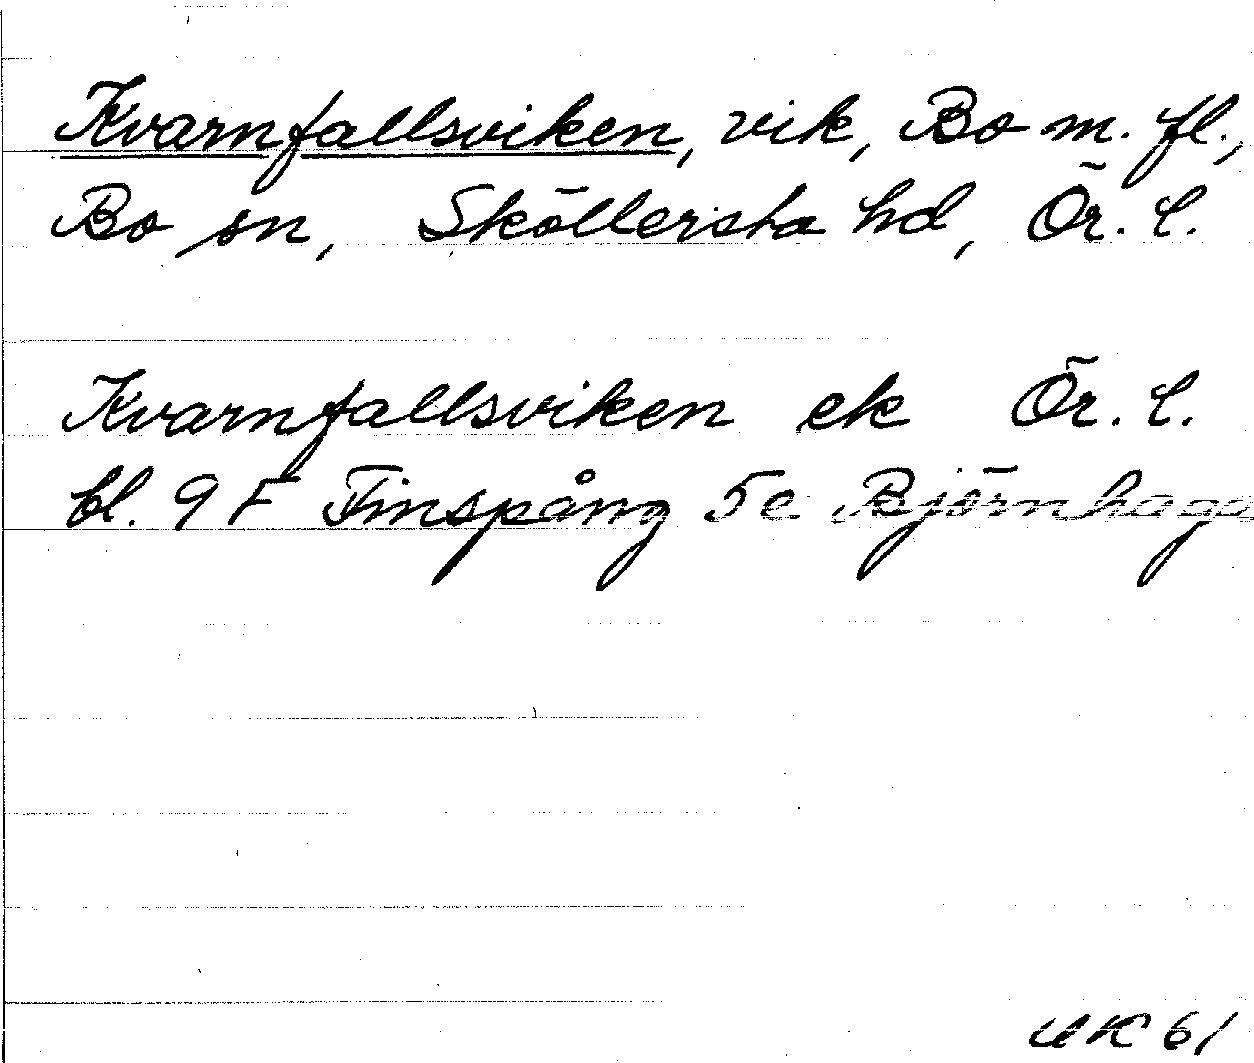 Kvarnfallsviken, vik, Bo m. fl.,
Bo sn, Sköllersta hd, Ör. l.
Kvarnfallsviken ek Ör. l.
bl. 9 F Finspång 5e Björnhaga
UK 61